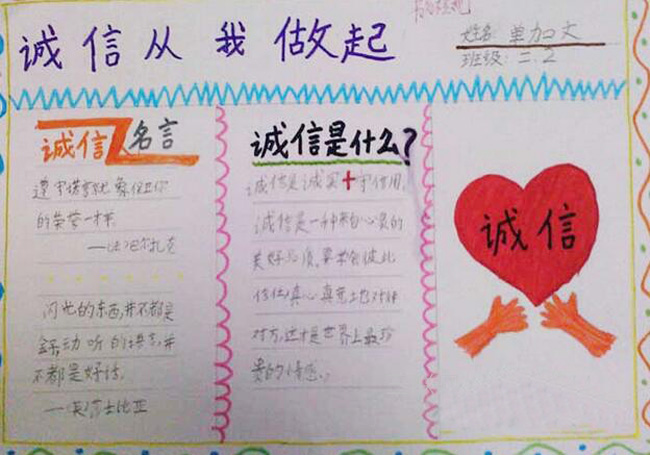 诚信从我做起
姓名:单加文
班级:二.2
诚信名言
遵守诺言就象保卫你
的荣誉一样。
——法 巴尔扎克
闪光的东西,并不都是
金子,动听的语言,并
不都是好话。
——英 莎士比亚
诚信是什么?
诚信是诚实+守信用,
诚信是一种来自心灵的
美好品质,要学会彼此
信任,真心真意地对待
对方,这才是世界上最珍
贵的情感。
诚信